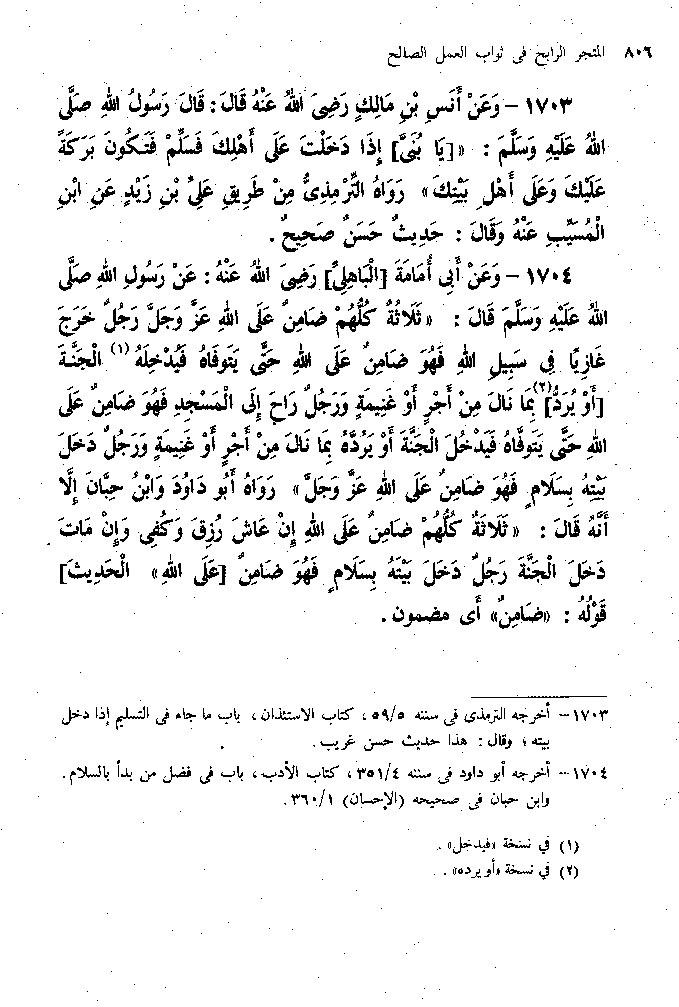 ٨٠٦ المتجر الرابح فى ثواب العمل الصالح
١٧٠٣ - وَعَنْ أَنَسِ بْنِ مَالِكٍ رَضِىَ اللهُ عَنْهُ قَالَ : قَالَ رَسُولُ اللهِ صَلَّى
اللهُ عَلَيْهِ وَسَلَّمَ : «[يَا بُنَىَّ] إِذَا دَخَلْتَ عَلَى أَهْلِكَ فَسَلِّمْ فَتَكُونَ بَرَكَةً
عَلَيْكَ وَعَلَى أَهْلِ بَيْتِكَ» رَوَاهُ التِّرْمِذِىُّ مِنْ طَرِيقِ عَلِىِّ بْنِ زَيْدٍ عَنِ ابْنِ
الْمُسَيَّبِ عَنْهُ وَقَالَ : حَدِيثٌ حَسَنٌ صَحِيحٌ .
١٧٠٤ - وَعَنْ أَبِى أُمَامَةَ [الْبَاهِلِىِّ] رَضِىَ اللهُ عَنْهُ : عَنْ رَسُولِ اللهِ صَلَّى
اللهُ عَلَيْهِ وَسَلَّمَ قَالَ : «ثَلَاثَةٌ كُلُّهُمْ ضَامِنٌ عَلَى اللهِ عَزَّ وَجَلَّ رَجُلٌ خَرَجَ
غَازِيًا فِى سَبِيلِ اللهِ فَهُوَ ضَامِنٌ عَلَى اللهِ حَتَّى يَتَوَفَّاهُ فَيُدْخِلَهُ (١) الْجَنَّةَ
[أَوْ يُرَدُّ](٢) بِمَا نَالَ مِنْ أَجْرٍ أَوْ غَنِيمَةٍ وَرَجُلٌ رَاحَ إِلَى الْمَسْجِدِ فَهُوَ ضَامِنٌ عَلَى
اللهِ حَتَّى يَتَوَفَّاهُ فَيَدْخُلَ الْجَنَّةَ أَوْ يَرُدَّهُ بِمَا نَالَ مِنْ أَجْرٍ أَوْ غَنِيمَةٍ وَرَجُلٌ دَخَلَ
بَيْتَهُ بِسَلَامٍ فَهُوَ ضَامِنٌ عَلَى اللهِ عَزَّ وَجَلَّ» رَوَاهُ أَبُو دَاوُدَ وَابْنُ حِبَّانَ إِلَّا
أَنَّهُ قَالَ : «ثَلَاثَةٌ كُلُّهُمْ ضَامِنٌ عَلَى اللهِ إِنْ عَاشَ رُزِقَ وَكُفِى وَإِنْ مَاتَ
دَخَلَ الْجَنَّةَ رَجُلٌ دَخَلَ بَيْتَهُ بِسَلَامٍ فَهُوَ ضَامِنٌ [عَلَى اللهِ» الْحَدِيثَ]
قَوْلُهُ : «ضَامِنٌ» أَى مضمون .
١٧٠٣ - أخرجه الترمذى فى سننه ٥٩/٥ ، كتاب الاستئذان ، باب ما جاء فى التسليم إذا دخل
بيته ؛ وقال : هذا حديث حسن غريب .
١٧٠٤ - أخرجه أبو داود فى سننه ٣٥١/٤ ، كتاب الأدب ، باب فى فضل من بدأ بالسلام .
وابن حبان فى صحيحه (الإحسان) ٣٦٠/١ .
(١) في نسخة «فيدخل» .
(٢) في نسخة «أو يرده» .